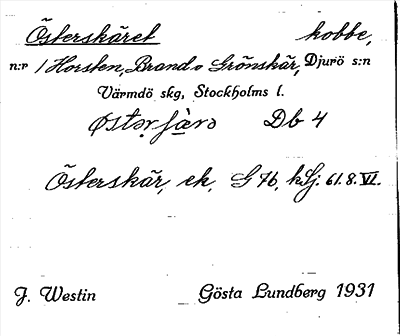 Österskäret kobbe,
n:r 1 Horsten, Brand o Grönskär, Djurö s:n
Värmdö skg, Stockholms l.
Db 4
Österskär, ek, G 76, kSj. 61.8. VI.
J. Westin Gösta Lundberg 1931